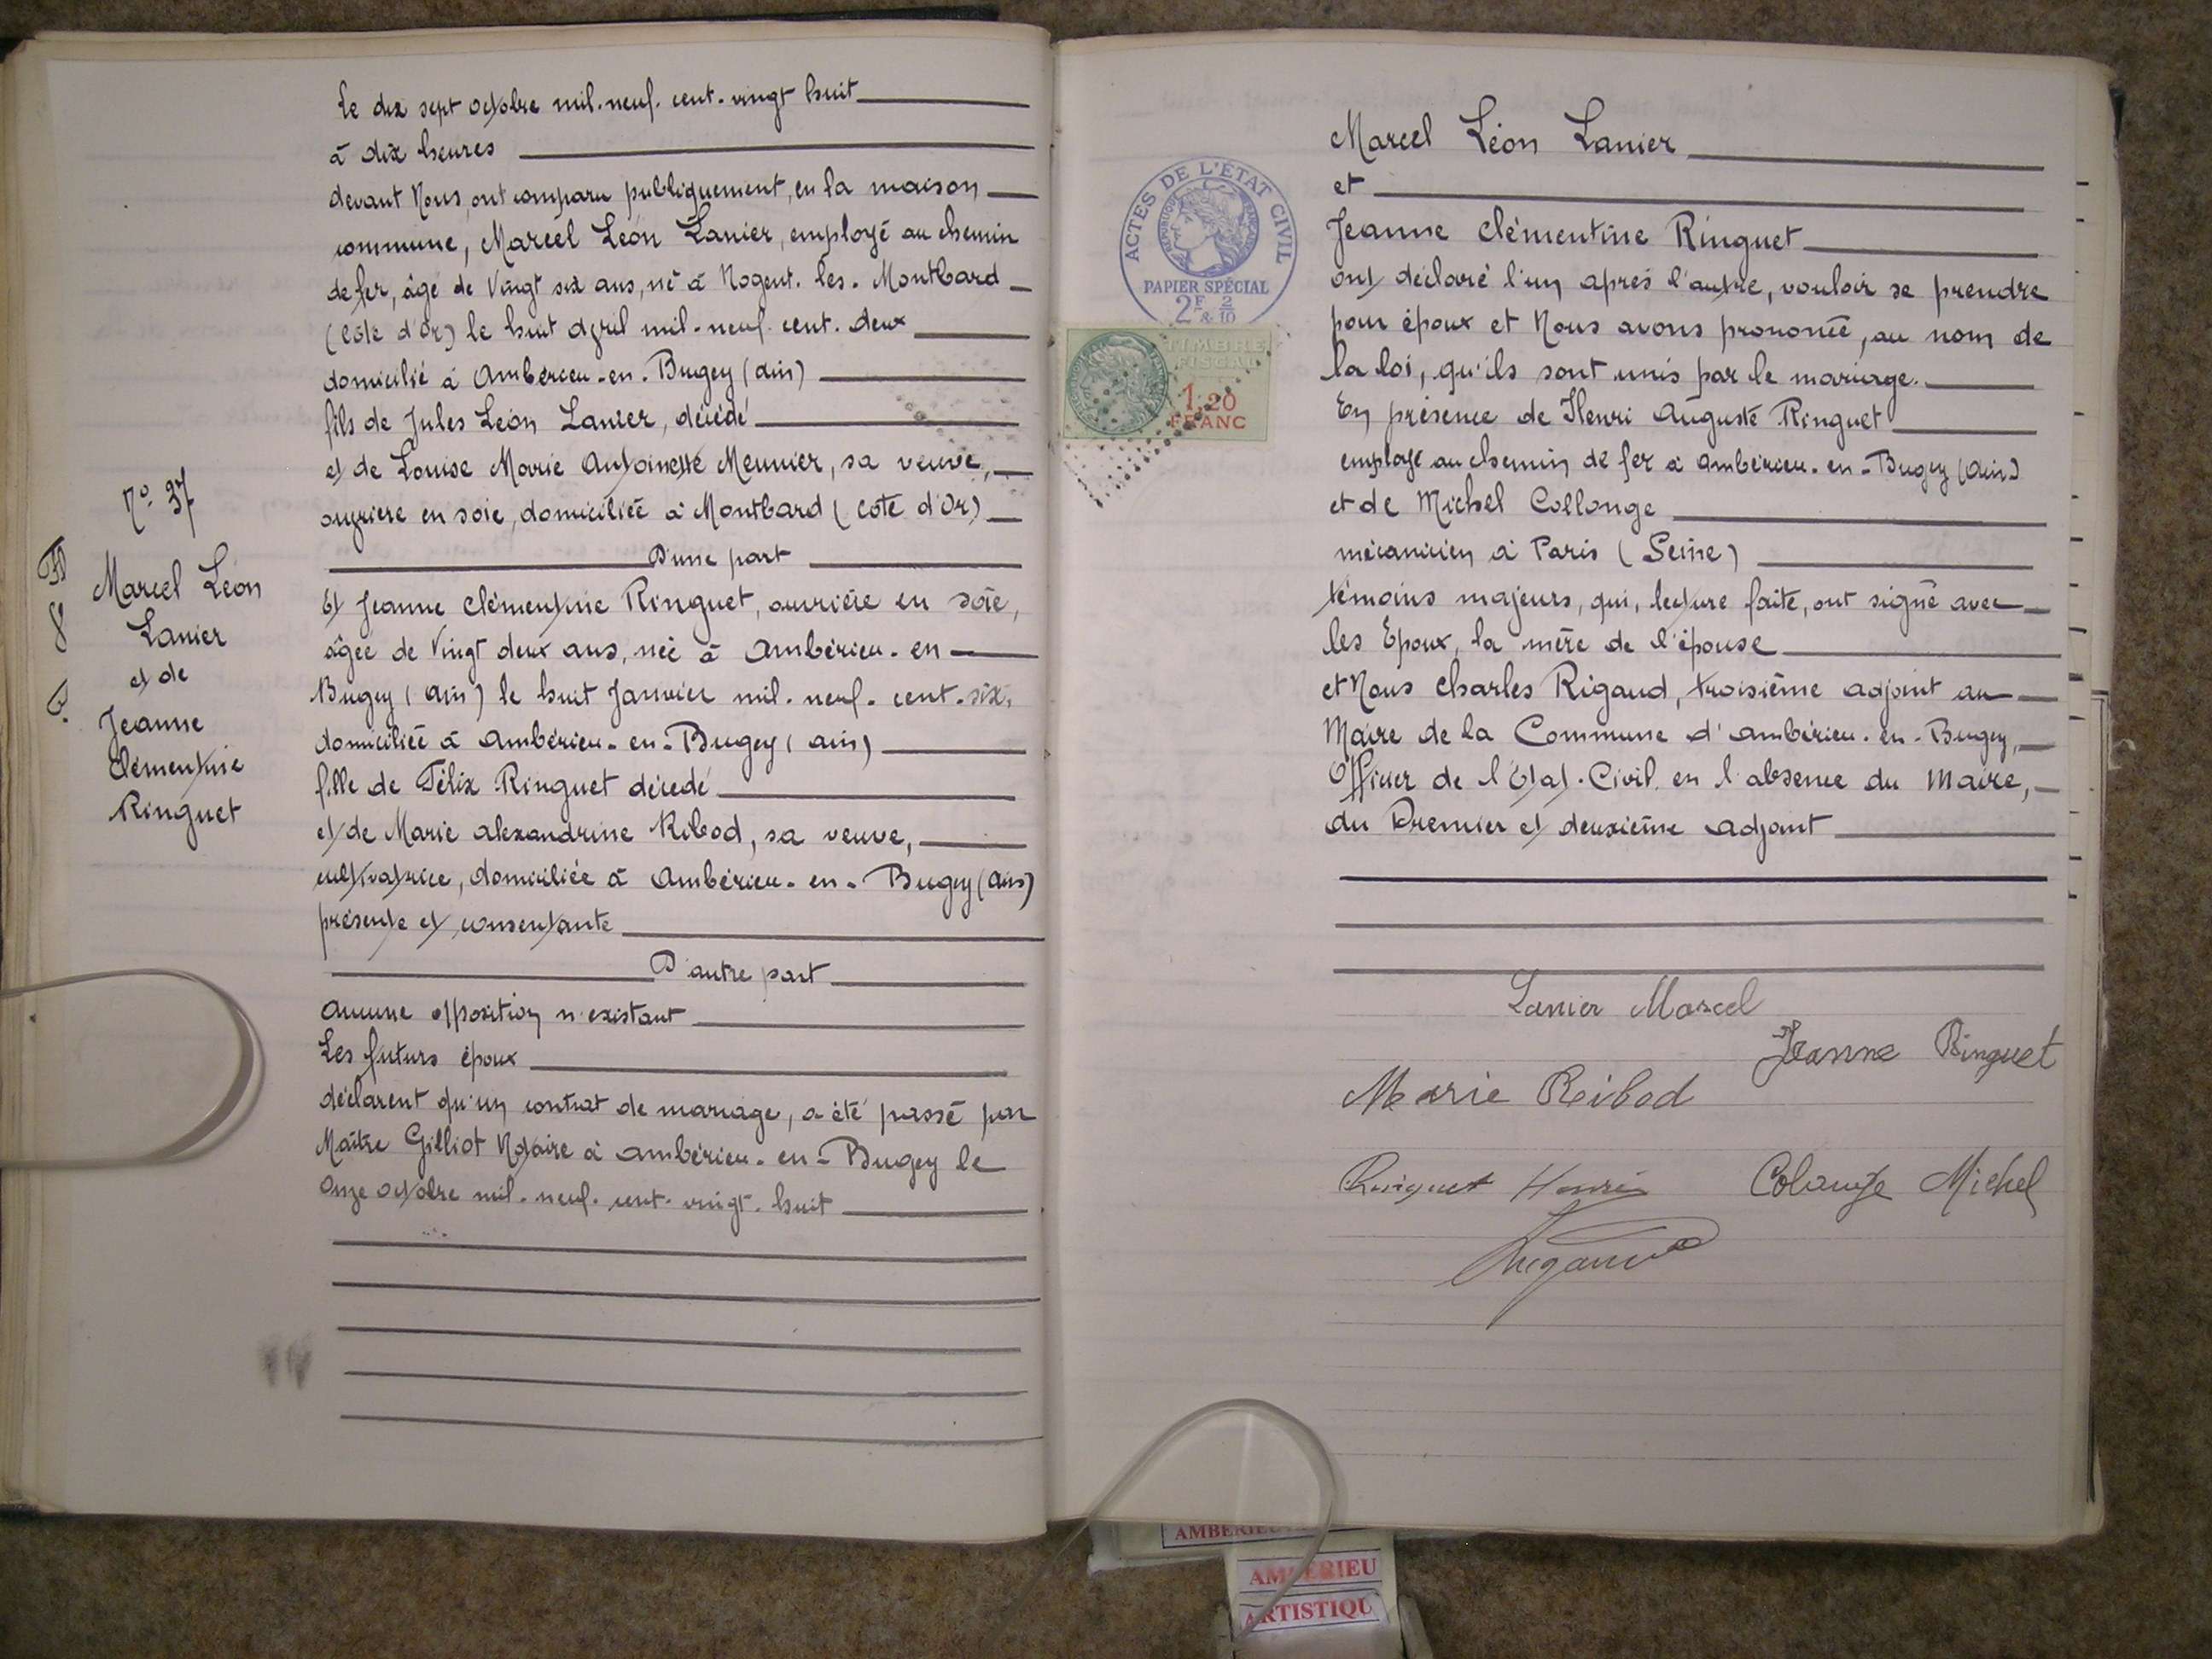 Le dix sept octobre mil-neuf-cent-vingt huit
à dix heures
devant Nous, ont comparu publiquement, en la maison
commune, Marcel Léon Lanier, employé au chemin
de fer, âgé de Vingt six ans, né à Nogent-les-Montbard
(Côte d'Or) le huit avril mil-neuf-cent-deux
domicilié à Ambérieu-en-Bugey (Ain)
fils de Jules Léon Lanier, décédé
et de Louise Marie Antoinette Meunier, sa veuve,
ouvrière en soie, domiciliée à Montbard (Côte d'Or)
D'une part
Et Jeanne Clémentine Ringuet, ouvrière en soie,
âgée de Vingt deux ans, née à Ambérieu-en-
Bugey (Ain) le huit Janvier mil-neuf-cent-six,
domiciliée à Ambérieu-en-Bugey (Ain)
fille de Félix Ringuet décédé
et de Marie Alexandrine Ribod, sa veuve,
cultivatrice, domiciliée à Ambérieu-en-Bugey (Ain)
présente et consentante
D'autre part
Aucune opposition n'existant
Les futurs époux
déclarent qu'un contrat de mariage, a été passé par
Maître Gilliot Notaire à Ambérieu-en-Bugey le
onze octobre mil-neuf-cent-vingt-huit
N° 37
Marcel Léon
Lanier
et de
Jeanne
Clémentine
Ringuet
Marcel Léon Lanier
et
Jeanne Clémentine Ringuet
ont déclaré l'un après l'autre, vouloir se prendre
pour époux et Nous avons prononcé, au nom de
la loi, qu'ils sont unis par le mariage.
En présence de Henri Auguste Ringuet
employé au chemin de fer à Ambérieu-en-Bugey (Ain)
et de Michel Collonge
mécanicien à Paris (Seine)
témoins majeurs, qui, lecture faite, ont signé avec
les Epoux, la mère de l'épouse
et Nous Charles Rigaud, troisième adjoint au
Maire de la Commune d'Ambérieu-en-Bugey,
Officier de l'Etat-Civil en l'absence du Maire,
du Premier et deuxième adjoint
Lanier Marcel
Jeanne Ringuet
Marie Ribod
Ringuet Henri
Colange Michel
Rigaud
ACTES DE L'ÉTAT CIVIL
RÉPUBLIQUE FRANÇAISE
PAPIER SPÉCIAL
2F & 2/10
TIMBRE
FISCAL
1,20
FRANC
AMBERIEU
AMBERIEU
ARTISTIQU